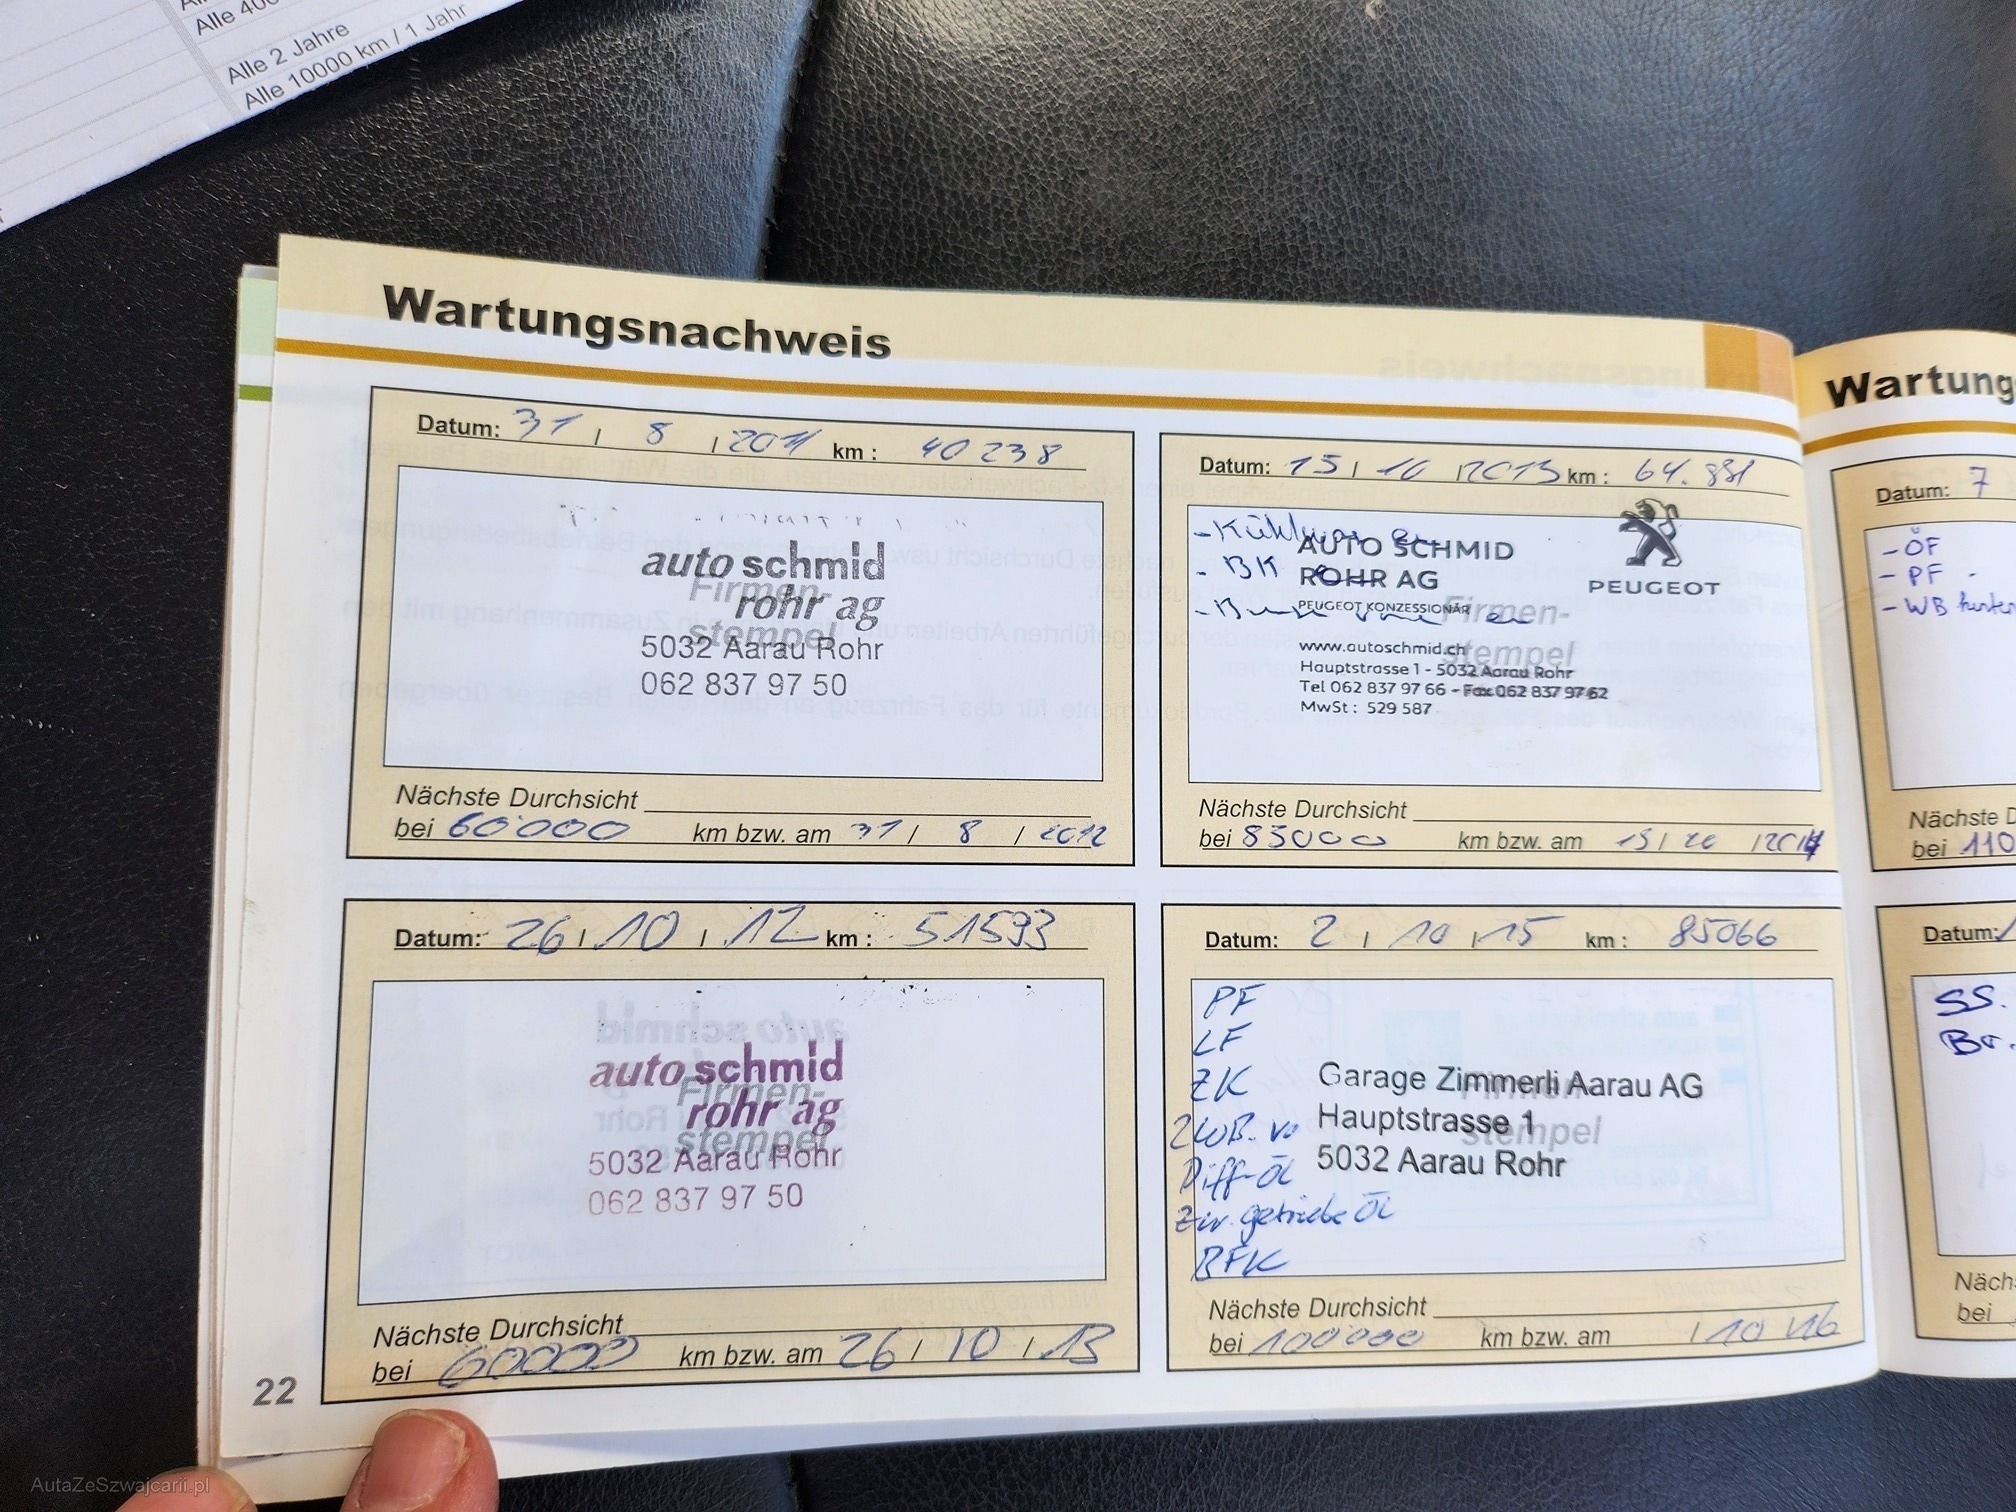 Alle 2 Jahre
Alle 10000 km / 1 Jahr
Wartungsnachweis
Datum: 31 / 8 / 2011 km : 40 238
auto schmid
rohr ag
Firmen-
stempel
5032 Aarau Rohr
062 837 97 50
Nächste Durchsicht
bei 60'000 km bzw. am 31 / 8 / 2012
Datum: 26 / 10 / 12 km : 51593
auto schmid
rohr ag
Firmen-
stempel
5032 Aarau Rohr
062 837 97 50
Nächste Durchsicht
bei 60000 km bzw. am 26 / 10 / 13
22
Datum: 15 / 10 / 2013 km :
- BK
AUTO SCHMID
ROHR AG
PEUGEOT KONZESSIONÄR
PEUGEOT
Firmen-
stempel
www.autoschmid.ch
Hauptstrasse 1 - 5032 Aarau Rohr
Tel 062 837 97 66 - Fax 062 837 97 62
MwSt : 529 587
Nächste Durchsicht
bei 85000 km bzw. am 15 / 10 / 2014
Datum: 2 / 10 / 15 km : 85066
PF
LF
ZK
Diff-Öl
Zw. getriebe Öl
BFK
Garage Zimmerli Aarau AG
Hauptstrasse 1
5032 Aarau Rohr
Firmen-
stempel
Nächste Durchsicht
bei 100000 km bzw. am / 10 / 16
Wartung
Datum: 7
- ÖF
- PF
- WB
Nächste D
bei 110
Datum:
SS.
Br.
Näch
bei
AutaZeSzwajcarii.pl